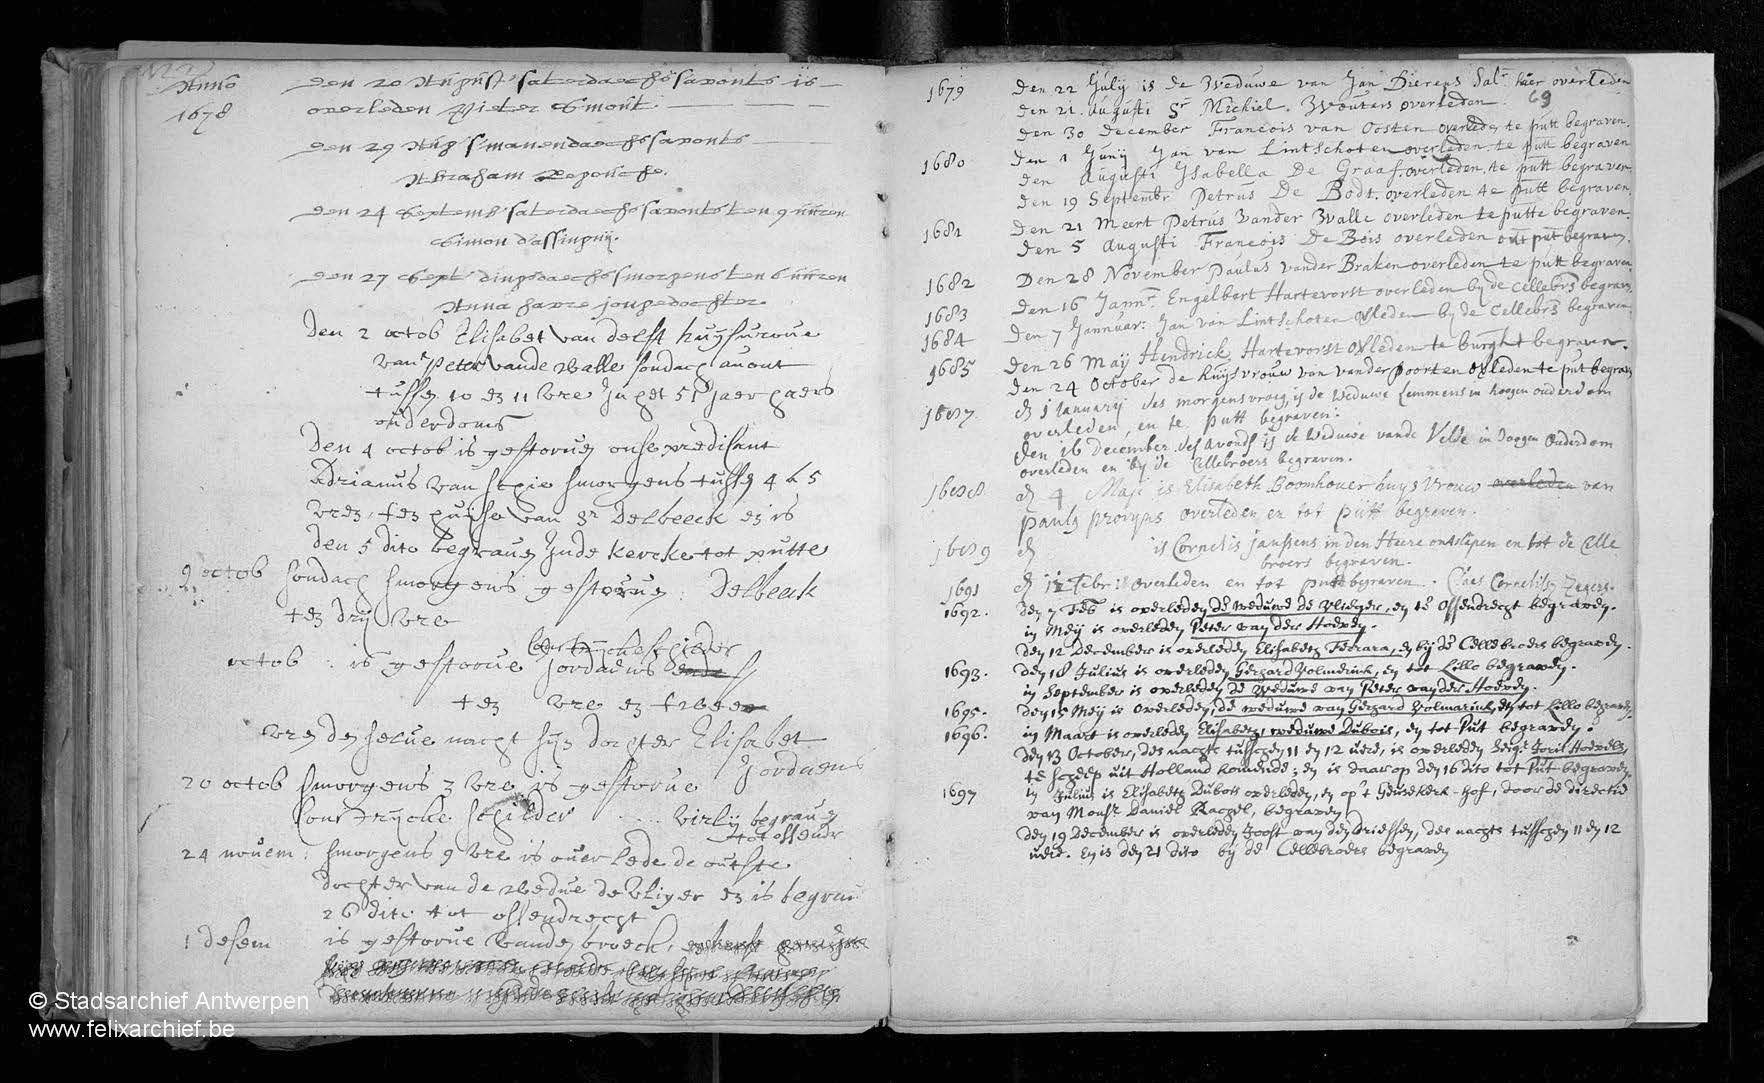 Anno den 20 Augúst saterdaechs savonts is
1678 overleden Pieter Simont
den 29 Aúg smanendaechs savonts
Abraham
den 24 Septemb saterdaechs savonts ten 9 uúren
Simon d'assinpuy.
den 27 Sept dinpsdaechs smorgens ten 6 uúren
Anna havre jonpedochter
den 2 octob Elisabet van delft huijsvroue
van Peter vande Walle sondach auont
tussen 10 en 11 vre In het 51 Jaer haers
ouderdoms
Den 4 octob is gestoruen onse predikant
Adrianus van smorgens tussen 4 & 5
vren, ten huijse van Sr Delbeeck en is
den 5 dito begrauen Inde kercke tot putte
9 octob sondach smorgens gestoruen Delbeeck
ten drij vre
octob : is gestorue Jordaens
ten vre en twee
vren den selue nacht sijn dochter Elisabet
Jordaens
20 octob smorgens 3 vre is gestorue
Contrijcke schilder begrauen
tot ossendr
24 nouem : smorgens 9 vre is ouerlede de outste
dochter van de Wedue de Vliger en is begrau
26 dito tot ossendrecht
1 desem is gestorue Vanden broeck,
69
1679 Den 22 Julij is De Weduwe van Jan Bierens Salr. hier overleden
den 21. augusti Sr Michiel. Wouters overleden.
den 30 december Francois van Oosten overleden te putt begraven.
1680 den 1 Junij Jan van Lintschoten overleden. te putt begraven
den augusti Ysabella De Graaf. overleden. te putt begraven
den 19 Septembr Petrus De Bodt. overleden te putt begraven
1681 den 21 Meert Petrus Vander Walle overleden te putte begraven.
den 5 augusti Francois De Bois overleden out put begraven.
1682 Den 28 November Paulus vander Braken overleden te putt begraven.
1683 Den 16 Jannr. Engelbert Hartevorst overleden bij de Cellebrs begraven
1684 Den 7 Jannuar: Jan van Lintschoten overleden bij de Cellebrs begraven
1685 Den 26 Maij Hendrick Hartevorst overleden te burght begraven.
den 24 October de huijsvrouw van vander poorten overleden te put begraven
1687. den 1 January des morgens vroeg, is de Weduwe Lemmens in hoogen ouderdom
overleden, en te putt begraven.
Den 16 december. des avonds is de Weduwe vande Velde in hoogen ouderdom
overleden en bij de Cellebroers begraven.
1688 den 4 Maji is Elisabeth Boomhouer huysvrouw overleden van
pauls provyns overleden en tot putt begraven.
1689 den is Cornelis janssens in den Heere ontslapen en tot de Celle
broers begraven.
1691 den 12 Febr is overleden en tot putt begraven. Claes Cornelisz Zegers.
1692. Den 7 Feb is overleden de weduwe de Vlieger, en te Ossendrecht begraven.
in Meij is overleden Peter van der Hoeven.
den 12 December is overleden Elisabeth Ferrara, en bij de Cellebroers begraven.
1693. den 18 Julius is overleden Gerhard Volmerink, en tot Lillo begraven.
in September is overleden de weduwe van Peter vander Hoeven.
1695. den 15 Meij is overleden, de weduwe van Gerhard Volmarink, en tot Lillo begraven.
1696. in Maart is overleden Elisabeth, weduwe Dubois, en tot Put begraven.
den 13 October, des nachts tusschen 11 en 12 uere, is overleden Joris Hoevels,
te scheep uit Holland komende; en is daar op den 16 dito tot Put begraven.
1697 in Julius is Elisabeth Dubois overleden, en op 't Geusekerk-hof, door de directie
van Monsr. Daniel Rachel, begraven.
den 19 December is overleden Joost van den Driessen, des nachts tusschen 11 en 12
uere. En is den 21 dito bij de Cellebroers begraven
© Stadsarchief Antwerpen
www.felixarchief.be